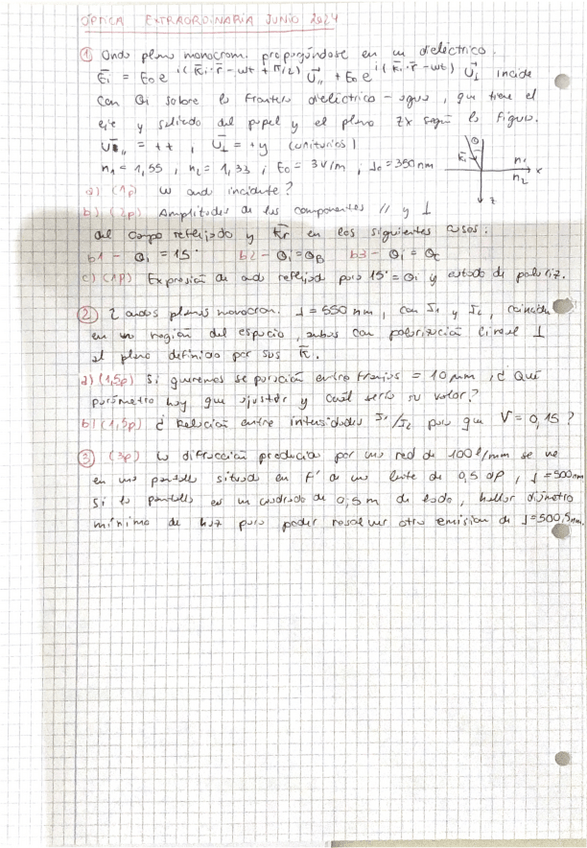 ÓPTICA EXTRAORDINARIA JUNIO 2024
① Onda plana monocrom. propagándose en un dieléctrico.
E⃗i = E₀ e^i(k⃗i·r⃗ - wt + π/2) U⃗// + E₀ e^i(k⃗i·r⃗ - wt) U⃗⊥ incide
con θi sobre la frontera dieléctrico - agua, que tiene el
eje y saliendo del papel y el plano zx según la figura.
U⃗// = +x, U⃗⊥ = +y (unitarios)
n1 = 1,55, n2 = 1,33; E0 = 3V/m; λ0 = 350nm
θ
k⃗i
n1
x
n2
z
a) (1p) w onda incidente?
b) (2p) Amplitudes de las componentes // y ⊥
del campo reflejado y k⃗r en los siguientes casos:
b1 - θi = 15° b2 - θi = θB b3 - θi = θc
c) (1P) Expresión de onda reflejada para 15° = θi y estado de polariz.
② 2 ondas planas monocrom. λ = 550 nm, con I1 y I2, coinciden
en una región del espacio, ambas con polarización lineal ⊥
al plano definido por sus k⃗.
a) (1,5p) Si queremos separación entre franjas = 10 μm, ¿Qué
parámetro hay que ajustar y cuál sería su valor?
b) (1,5p) ¿Relación entre intensidades I1/I2 para que V = 0,15?
③ (3p) La difracción producida por una red de 100 l/mm se ve
en una pantalla situada en F' de una lente de 0,5 dp, λ = 500nm
Si la pantalla es un cuadrado de 0,5 m de lado, hallar diámetro
mínimo de haz para poder resolver otra emisión de λ = 500,5nm.